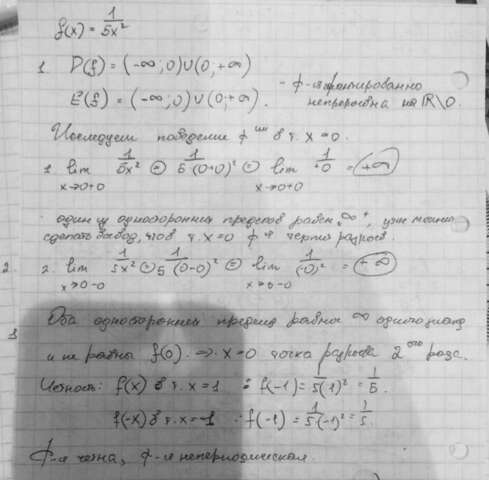 f(x) = 1/5x²
1. D(f) = (-∞; 0) ∪ (0, +∞)
E(f) = (-∞; 0) ∪ (0, +∞). - ф-я
непрерывна на ℝ\0.
Исследуем поведение ф-ии в т. x=0.
1. lim 1/5x² = 1/5(0+0)² = lim 1/+0 = +∞
x→0+0 x→0+0
один из односторонних пределов равен „∞“, уже можно
сделать вывод, что в т. x=0 ф-я терпит разрыв.
2. 2. lim 1/5x² = 1/5(0-0)² = lim 1/(-0)² = +∞
x→0-0 x→0-0
3 Оба односторонних предела равны ∞
и не равны f(0). ⇒ x=0 точка разрыва 2ого рода.
Четность: f(x) в т. x=1 : f(-1) = 1/5(1)² = 1/5.
f(-x) в т. x=-1 : f(-1) = 1/5(-1)² = 1/5.
Ф-я четна, ф-я непериодическая.